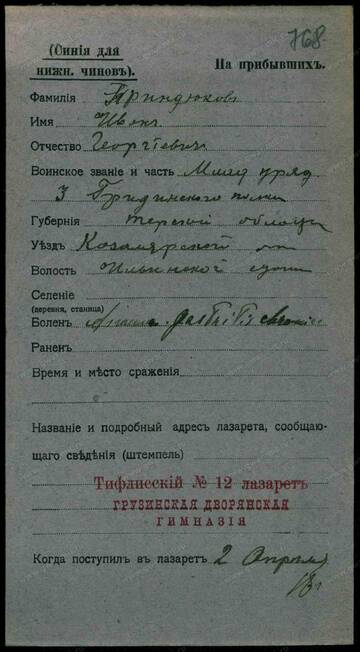 768
(Синія для
нижн. чиновъ).
На прибывшихъ.
Фамилія Приндюковъ
Имя Иванъ
Отчество Георгіевичъ
Воинское званіе и часть Млад уряд
3 полка
Губернія Терской области
Уѣздъ
Волость Ильинской
Селеніе
(деревня, станица)
Боленъ
Раненъ
Время и мѣсто сраженія
Названіе и подробный адресъ лазарета, сообщаю-
щаго свѣдѣнія (штемпель)
Тифлисскій № 12 лазаретъ
ГРУЗИНСКАЯ ДВОРЯНСКАЯ
ГИМНАЗІЯ
Когда поступилъ въ лазаретъ 2 Апрѣля